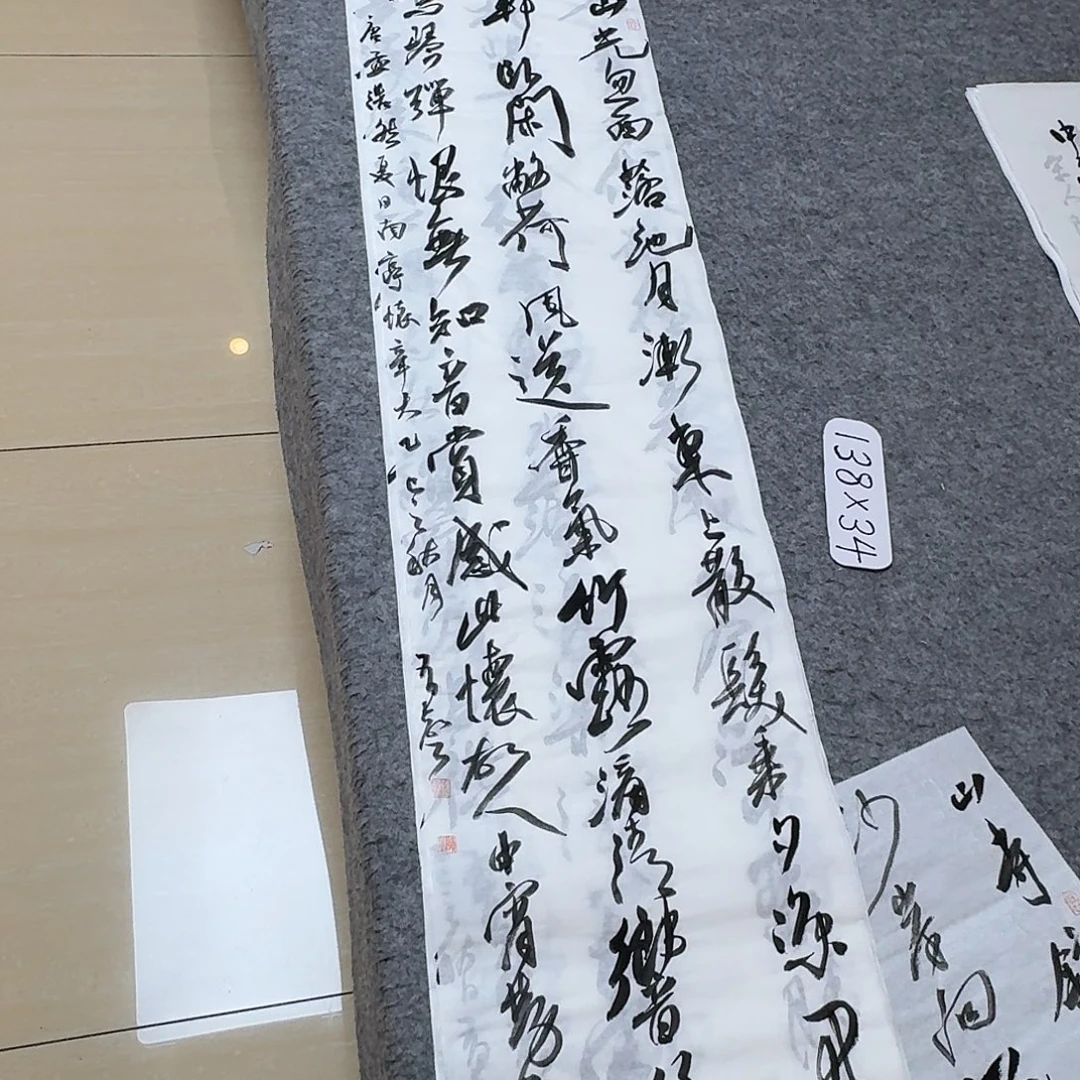 山光忽西落池月漸東上散髮乘夕涼開
軒臥閑敞荷風送香氣竹露滴清響
鳴琴彈恨無知音賞感此懷故人中宵勞
唐孟浩然夏日南亭懷辛大乙巳之秋月
138×34
中
山